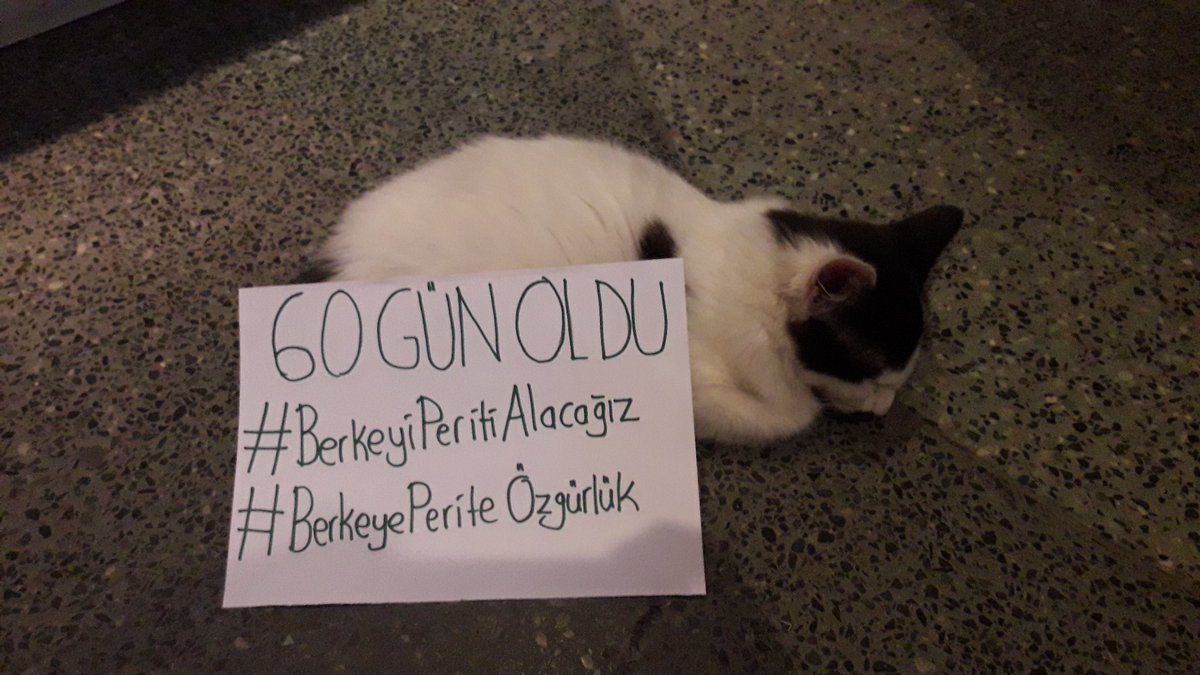 60 GÜN OLDU
#BerkeyiPeritiAlacağız
#BerkeyePerite Özgürlük